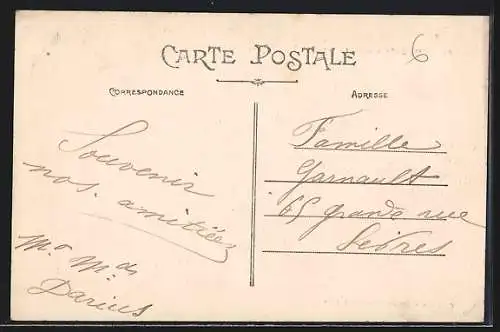 CARTE POSTALE
6
CORRESPONDANCE
ADRESSE
Souvenir
nos. amitiées
Mr Mds
Darius
Famille
Garnault
65 grande rue
Sèvres